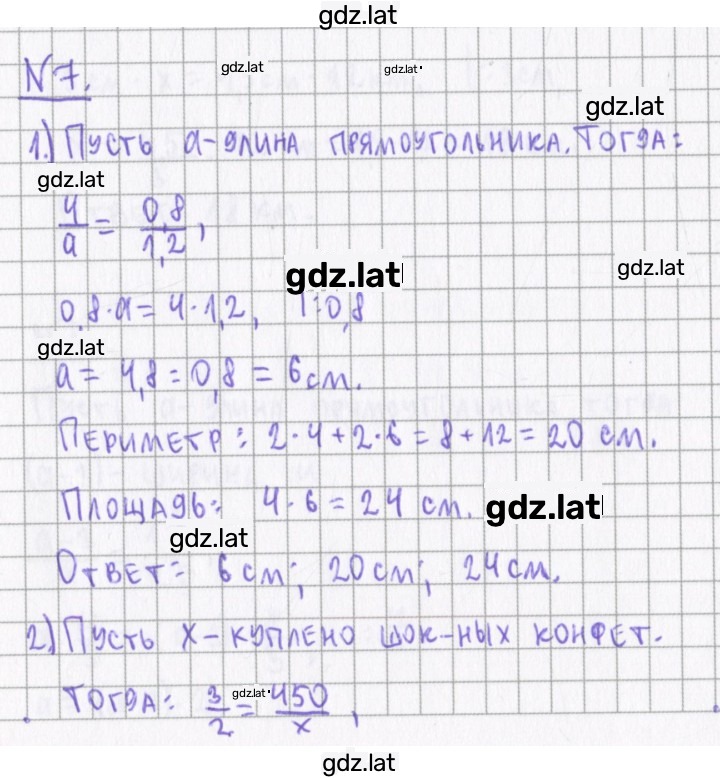 gdz.lat
N 7.
gdz.lat
gdz.lat
gdz.lat
1.) Пусть a-длина прямоугольника. Тогда:
gdz.lat
4/a = 0,8/1,2,
gdz.lat
gdz.lat
0,8·a = 4·1,2, |:0,8
gdz.lat
a = 4,8:0,8 = 6 см.
Периметр: 2·4+2·6=8+12=20 см.
Площадь: 4·6=24 см. gdz.lat
gdz.lat
Ответ: 6 см; 20 см; 24 см.
2) Пусть x-куплено шок-ных конфет.
Тогда: 3/2 = 450/x,
gdz.lat
gdz.lat